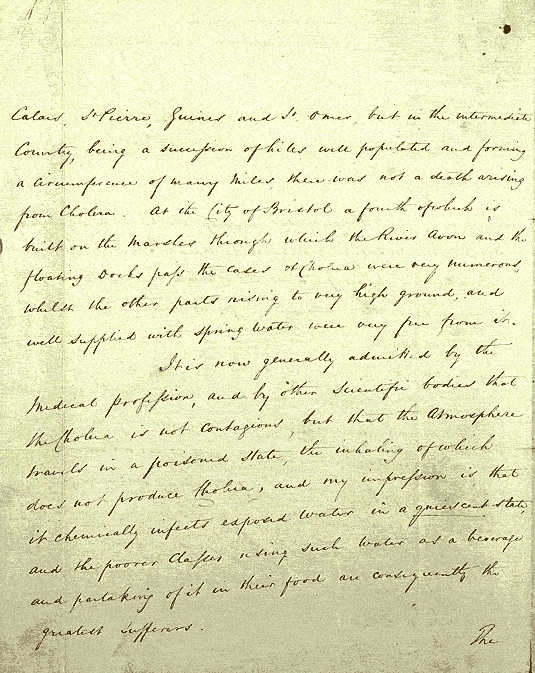 Calais, St Pierre, Guines and St. Omer, but in the intermediate
Country, being a succession of hills well populated and forming
a Circumference of many Miles, there was not a death arising
from Cholera. At the City of Bristol a fourth of which is
built on the Marshes through which the River Avon and the
floating Docks pass the Cases of Cholera were very numerous,
whilst the other parts rising to very high ground, and
well supplied with spring Water were very free from it.
It is now generally admitted by the
Medical Profession, and by other Scientific bodies that
the Cholera is not Contagious, but that the Atmosphere
travels in a poisoned State, the inhaling of which
does not produce Cholera, and my impression is that
it chemically infects exposed water in a quiescent state,
and the poorer Classes using such Water as a beverage
and partaking of it in their food are consequently the
greatest sufferers.
The